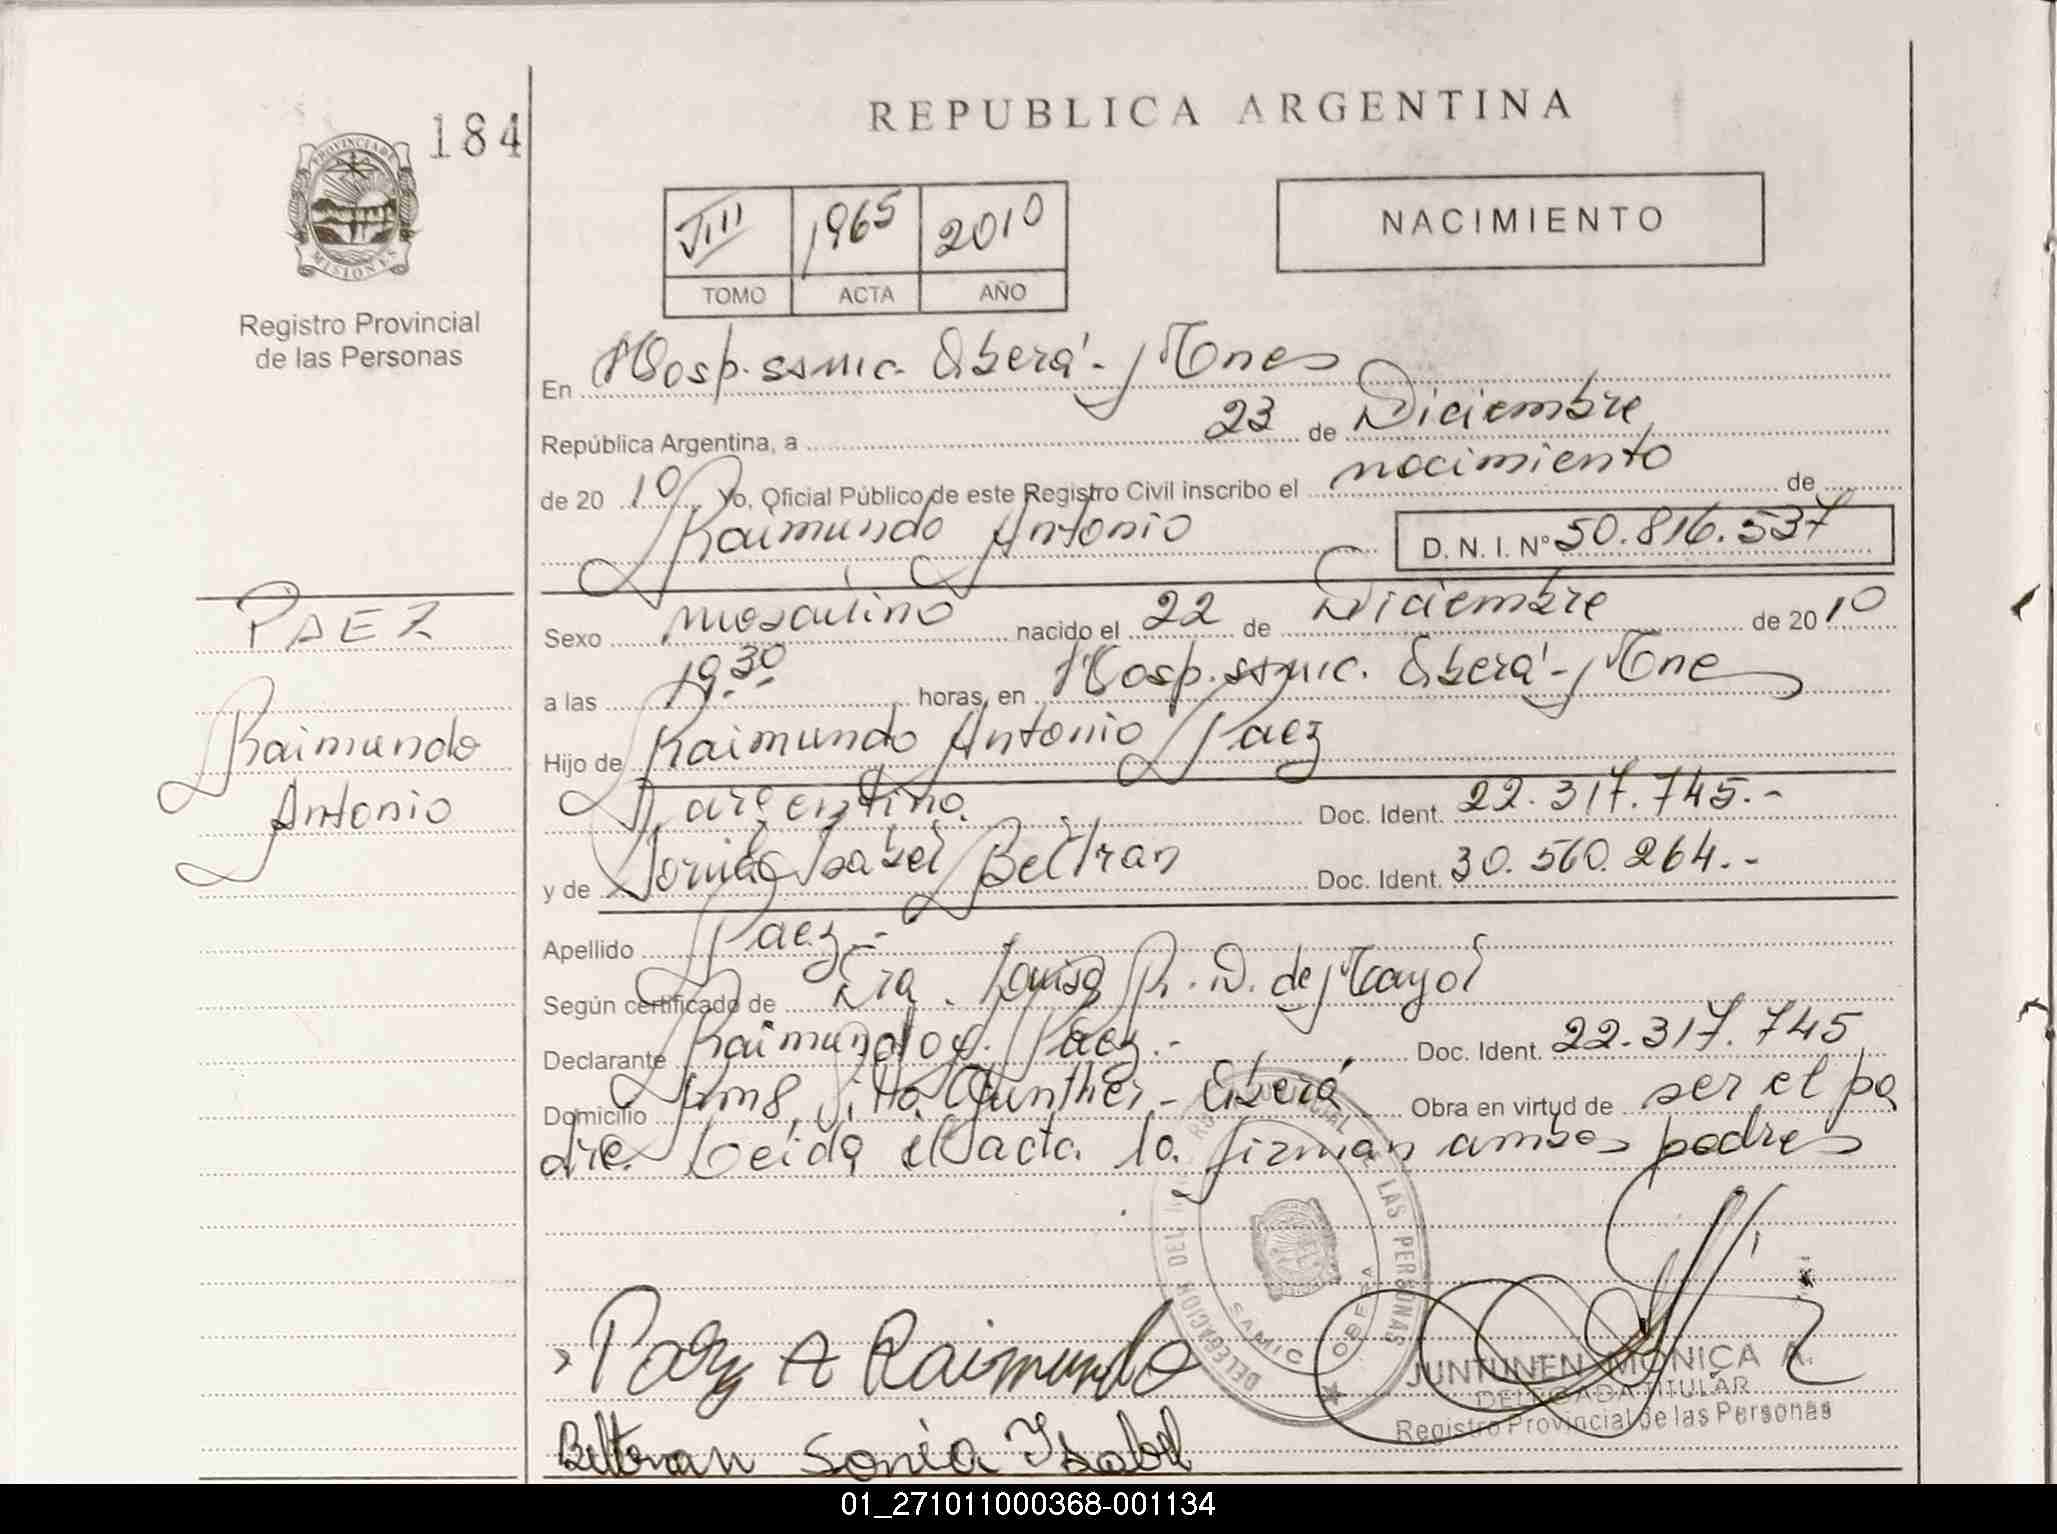 184
PROVINCIA DE
MISIONES
Registro Provincial
de las Personas
REPUBLICA ARGENTINA
VIII 1965 2010
TOMO ACTA AÑO
NACIMIENTO
En Hosp. SAMIC. Oberá - Mnes
República Argentina, a 23 de Diciembre
de 20 10 Yo, Oficial Público de este Registro Civil inscribo el nacimiento de
Raimundo Antonio D. N. I. Nº 50.816.537
PAEZ
Raimundo
Antonio
Sexo masculino nacido el 22 de Diciembre de 20 10
a las 19.30 horas, en Hosp. SAMIC. Oberá - Mne
Hijo de Raimundo Antonio Paez
argentino. Doc. Ident. 22.317.745.-
y de Isabel Beltran Doc. Ident. 30.560.264.-
Apellido Paez.-
Según certificado de Dra. Louisa R. D. de Mayol
Declarante Raimundo A. Paez.- Doc. Ident. 22.317.745
Domicilio Km 8, Gunther - Oberá Obra en virtud de ser el pa
dre. Leida el acta la firman ambos padres
DELEGACION DEL LAS PERSONAS
SAMIC OBERA
Paez A Raimundo
JUNTUNEN MONICA A.
DELEGADA TITULAR
Registro Provincial de las Personas
Beltran Sonia Isabel
01_271011000368-001134